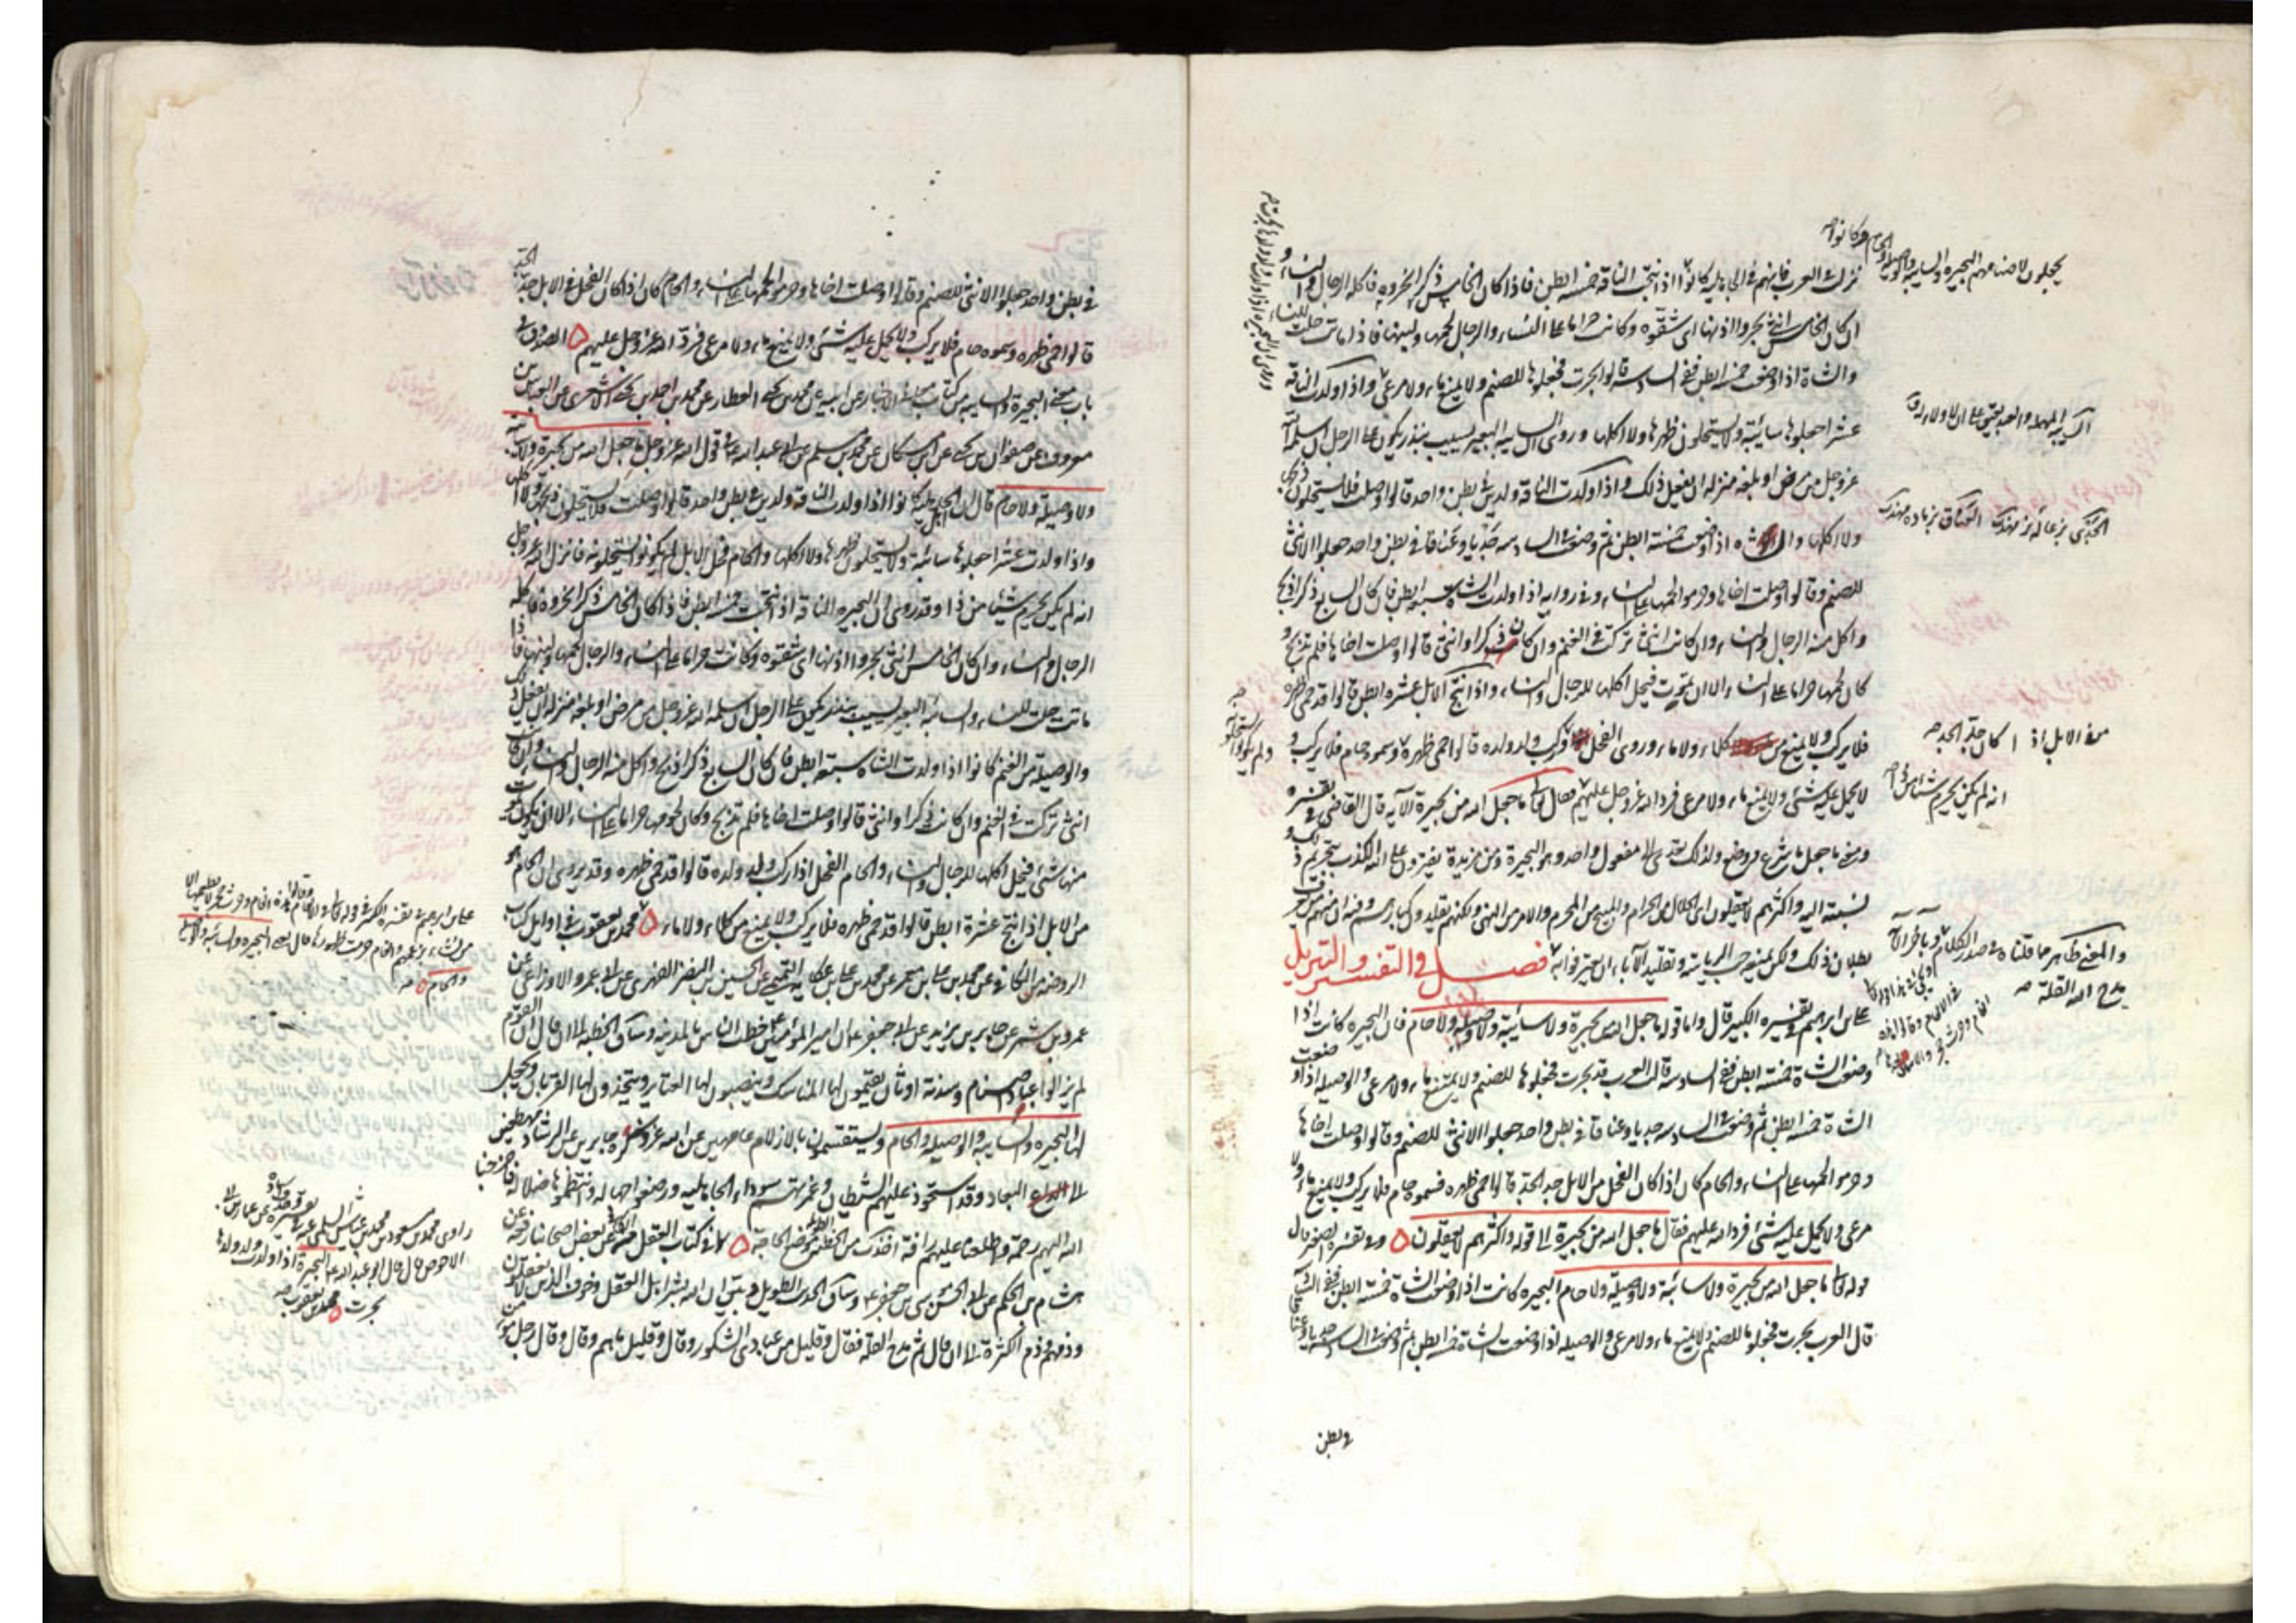 نزلت في العرب فإنهم في الجاهلية كانوا إذا نتجت الناقة خمسة ابطن فإذا كان الخامس ذكرا نحروه فأكله الرجال والنساء و
ان كان الخامس انثى بحروا اذنها اى شقّوه وكانت حراما على النساء والرجال لحمها ولبنها فاذا ماتت حلت للنساء
والشاة اذا وضعت خمسة ابطن ففي السادسة قالوا بحرت فجعلوها للصنم ولا يمنع ماء ولا مرعى واذا ولدت الناقة
عشرا جعلوها سائبة ولا يستحلون ظهرها ولا اكلها وروى السايبه البعير يسيب بنذر يكون على الرجل ان سلمه الله
عز وجل من مرض او بلغه منزله ان يفعل ذلك واذا ولدت الناقة ولدين في بطن واحد قالوا وصلت فلا يستحلون ذبحها
ولا اكلها والشاه اذا وضعت خمسة ابطن ثم وضعت في السادسه جديا وعناقا في بطن واحد جعلوا الانثى
للصنم وقالوا وصلت اخاها وحرموا لحمها على النساء وفي روايه اذا ولدت الشاة سبعة ابطن فان كان السابع ذكرا ذبح
واكل منه الرجال والنساء وان كانت انثى تركت في الغنم وان كان ذكرا وانثى قالوا وصلت اخاها فلم تذبح و
كان لحمها حراما على النساء الا ان تموت فيحل اكلها للرجال والنساء واذا نتج الابل عشرة ابطن قالوا قد حمى ظهره
فلا يركب ولا يمنع من كلاء ولا ماء وروى الفحل اذا ركب ولد ولده قالوا حمى ظهره وسموه حام فلا يركب و
لا يحمل عليه شئ ولا يمنع ماء ولا مرعى فرد الله عز وجل عليهم فقال تعالى ما جعل الله من بحيرة الآية قال القاضى في تفسيره
ومعنى ما جعل ما شرع ووضع ولذلك تعدى الى مفعول واحد وهو البحيرة ومن مزيدة يفترون على الله الكذب بتحريم ذلك و
نسبته اليه واكثرهم لا يعقلون اى الحلال من الحرام والمبيح من المحرم والامر من النهى ولكنهم يقلدون كبارهم وفيه ان منهم من يعرف
بطلان ذلك ولكن يمنعهم حب الرياسة وتقليد الآباء ان يعترفوا به فصل في التفسير والتنزيل
على بن ابراهيم في تفسيره الكبير قال واما قوله ما جعل الله من بحيرة ولا سائبة ولا وصيلة ولا حام فان البحيره كانت اذا
وضعت الشاة خمسة ابطن ففي السادسة قالت العرب قد بحرت فجعلوها للصنم ولا يمنع ماء ولا مرعى والوصيله اذا وضعت
الشاة خمسة ابطن ثم وضعت في السادسه جديا وعناقا في بطن واحد جعلوا الانثى للصنم وقالوا وصلت اخاها
وحرموا لحمها على النساء والحام كان اذا كان الفحل من الابل جد الجد قالوا حمى ظهره فسموه حام فلا يركب ولا يمنع ماء ولا
مرعى ولا يحمل عليه شئ فرد الله عليهم فقال ما جعل الله من بحيرة الى قوله واكثرهم لا يعقلون وفي تفسيره الصغير قال
قوله تعالى ما جعل الله من بحيرة ولا سائبة ولا وصيلة ولا حام البحيره كانت اذا وضعت الشاة خمسة ابطن ففي السادسة
قال العرب بحرت فجعلوها للصنم ولا يمنع ماء ولا مرعى والوصيله اذا وضعت الشاة خمسة ابطن ثم وضعت في السادسه جديا وعناقا
في بطن
يجعلون لاصنامهم البحيره والسايبه والوصيله والحام وكانوا
الجدى بزغاله نر
من الابل اذا كان جد الجد
انه لم يكن يحرم شيئا من ذا
والمعنى ظاهر مما قلناه في صدر الكلام
مدح الله القلة
في بطن واحد جعلوا الانثى للصنم وقالوا وصلت اخاها وحرموا لحمها على النساء والحام كان اذا كان الفحل من الابل جد الجد
قالوا حمى ظهره وسموه حام فلا يركب ولا يحمل عليه شئ ولا يمنع ماء ولا مرعى فرد الله عز وجل عليهم الصدوق في
باب معنى البحيرة والسايبه من كتاب معاني الاخبار عن ابيه عن محمد بن يحيى العطار عن محمد بن احمد بن يحيى الاشعرى عن العباس بن
معروف عن صفوان بن يحيى عن ابن مسكان عن محمد بن مسلم عن ابي عبد الله ع في قول الله عز وجل ما جعل الله من بحيرة ولا سائبة
ولا وصيلة ولا حام قال ان اهل الجاهلية كانوا اذا ولدت الناقة ولدين في بطن واحد قالوا وصلت فلا يستحلون ذبحها ولا اكلها
واذا ولدت عشرا جعلوها سائبة ولا يستحلون ظهرها ولا اكلها والحام فحل الابل لم يكونوا يستحلونه فانزل الله عز وجل
انه لم يكن يحرم شيئا من ذا وقد روى ان البحيره الناقة اذا نتجت خمسة ابطن فاذا كان الخامس ذكرا نحروه فاكله
الرجال والنساء وان كان الخامس انثى بحروا اذنها اى شقوه وكانت حراما على النساء والرجال لحمها ولبنها فاذا
ماتت حلت للنساء والسائبة البعير يسيب بنذر يكون على الرجل ان سلمه الله عز وجل من مرض او بلغه منزله ان يفعل ذلك
والوصيلة من الغنم كانوا اذا ولدت الشاة سبعة ابطن فان كان السابع ذكرا ذبح واكل منه الرجال والنساء وان كانت
انثى تركت في الغنم وان كان ذكرا وانثى قالوا وصلت اخاها فلم تذبح وكان لحومها حراما على النساء الا ان يكون يموت
منها شئ فيحل اكلها للرجال والنساء والحام الفحل اذا ركب ولد ولده قالوا قد حمى ظهره وقد يروى ان الحام هو
من الابل اذا نتج عشرة ابطن قالوا قد حمى ظهره فلا يركب ولا يمنع من كلاء ولا ماء محمد بن يعقوب في اوايل كتاب
الروضه من الكافي عن محمد بن علي بن معمر عن محمد بن علي بن عكاية التميمي عن الحسين بن النضر الفهرى عن ابي عمرو الاوزاعى عن
عمرو بن شمر عن جابر بن يزيد عن ابي جعفر ع ان امير المؤمنين ع خطب الناس بالمدينه وساق الخطبه الى ان قال ان القوم
لم يزالوا عباد اصنام وسدنة اوثان يقيمون لها المناسك وينصبون لها العتاير ويتخذون لها القربان ويجعلون
لها البحيره والسايبه والوصيله والحام ويستقسمون بالازلام عامهين عن الله عز ذكره جايرين عن الرشاد مهطعين
الى البعاد وقد استحوذ عليهم الشيطان وغمرتهم سوداء الجاهليه ورضعوا جهاله وانتظموها ضلالة فاخرجنا
الله اليهم رحمة واطلعنا عليهم رافة
هشام بن الحكم عن ابي الحسن موسى بن جعفر ع وساق الحديث الطويل
وذمهم وذم الكثرة الى ان قال ثم مدح القلة فقال وقليل من عبادى الشكور وقال وقليل ما هم وقال وقال رجل مؤمن
على بن ابراهيم في تفسيره
والحام
راوى محمد بن مسعود بن محمد بن عياش السلمى في تفسيره عن عمار بن ابي
الاحوص قال قال ابو عبد الله ع البحيرة اذا ولدت وولد ولدها
بحرت محمد بن يعقوب